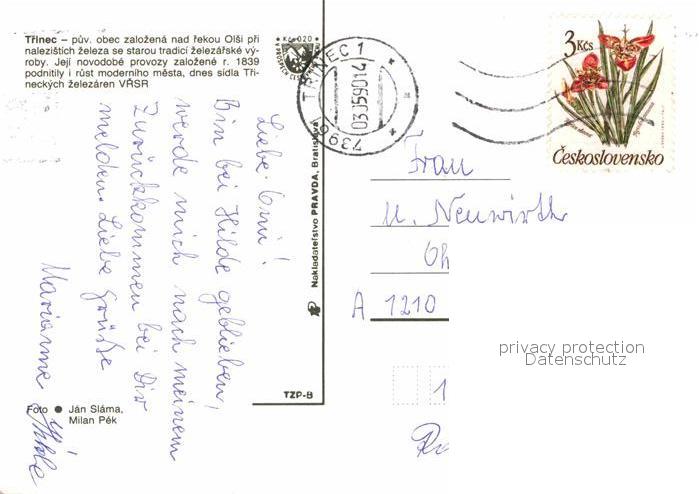 Třinec – pův. obec založená nad řekou Olší při
nalezištích železa se starou tradicí železářské vý-
roby. Její novodobé provozy založené r. 1839
podnítily i růst moderního města, dnes sídla Tři-
neckých železáren VŘSR
Kčs 0,20
TŘINEC 1
03.05.90-14
739 61
3 Kčs
Československo
Liebe Omi!
Bin bei Hilde geblieben,
werde mich nach meinem
Zurückkommen bei Dir
melden. Liebe Grüße
Marianne
Hilde
Nakladatelstvo PRAVDA, Bratislava
TZP-B
Foto ● Ján Sláma,
Milan Pék
Frau
M. Neuwirth
A 1210
1
privacy protection
Datenschutz